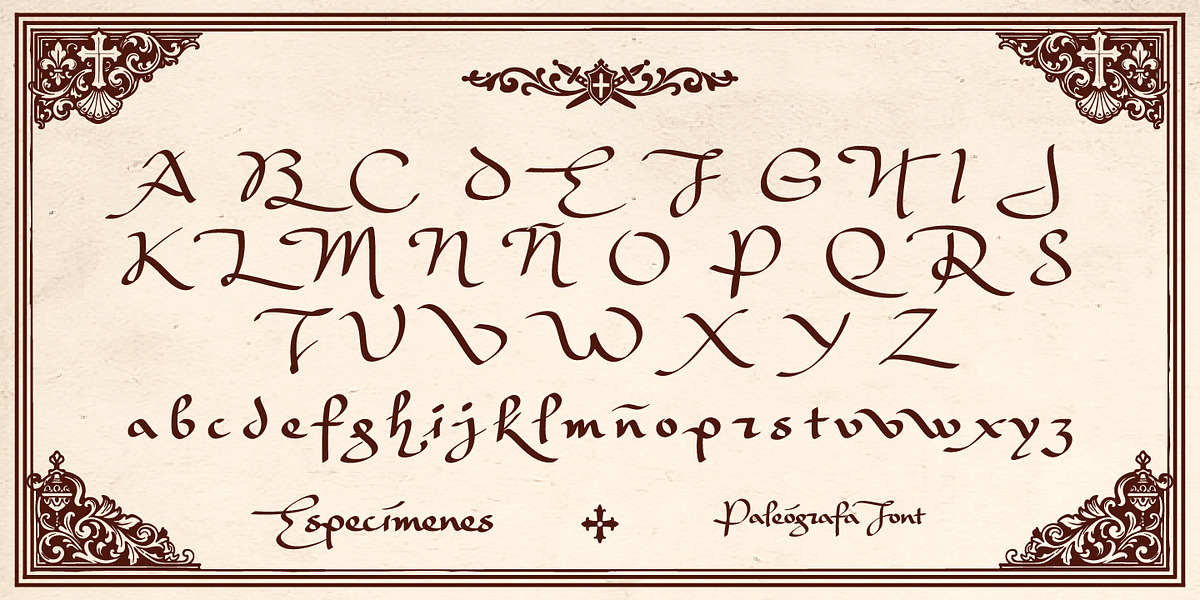 A B C D E F G H I J
K L M N Ñ O P Q R S
T U V W X Y Z
a b c d e f g h i j k l m ñ o p r s t u v w x y z
Especímenes
Paleógrafa Font